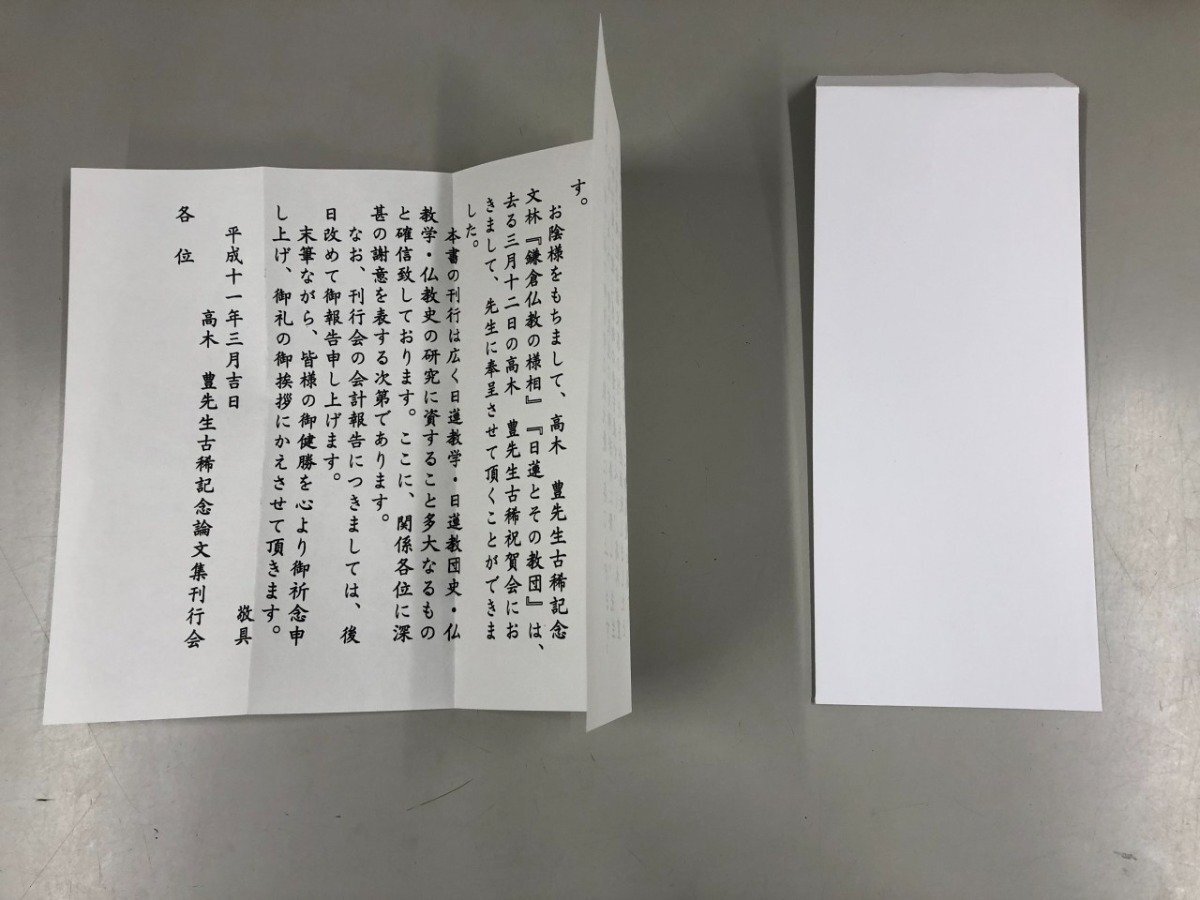 す。
お陰様をもちまして、高木　豊先生古稀記念
文林『鎌倉仏教の様相』『日蓮とその教団』は、
去る三月十二日の高木　豊先生古稀祝賀会にお
きまして、先生に奉呈させて頂くことができま
した。
本書の刊行は広く日蓮教学・日蓮教団史・仏
教学・仏教史の研究に資すること多大なるもの
と確信致しております。ここに、関係各位に深
甚の謝意を表する次第であります。
なお、刊行会の会計報告につきましては、後
日改めて御報告申し上げます。
末筆ながら、皆様の御健勝を心より御祈念申
し上げ、御礼の御挨拶にかえさせて頂きます。
敬具
平成十一年三月吉日
高木　豊先生古稀記念論文集刊行会
各　位